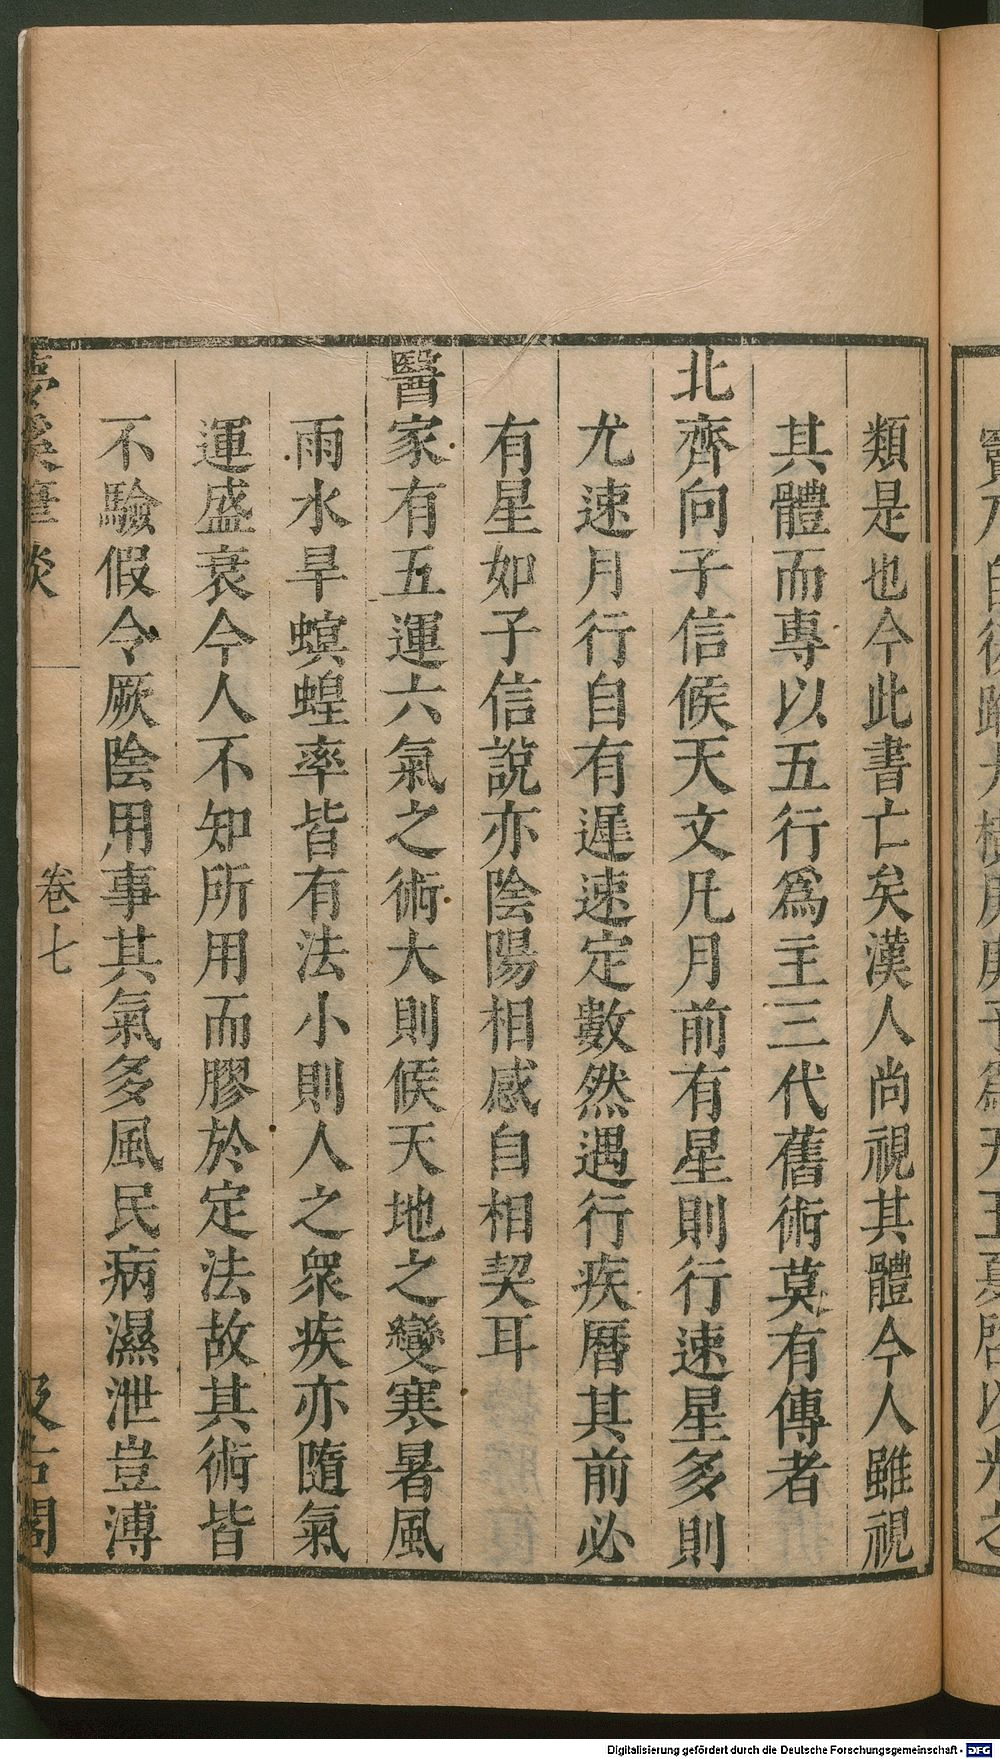 類是也今此書亡矣漢人尚視其體今人雖視
其體而專以五行爲主三代舊術莫有傳者
北齊向子信候天文凡月前有星則行速星多則
尤速月行自有遲速定數然遇行疾曆其前必
有星如子信說亦陰陽相感自相契耳
醫家有五運六氣之術大則候天地之變寒暑風
雨水旱螟蝗率皆有法小則人之衆疾亦隨氣
運盛衰今人不知所用而膠於定法故其術皆
不驗假令厥陰用事其氣多風民病濕泄豈溥
夢溪筆談
卷七
汲古閣
Digitalisierung gefördert durch die Deutsche Forschungsgemeinschaft - DFG